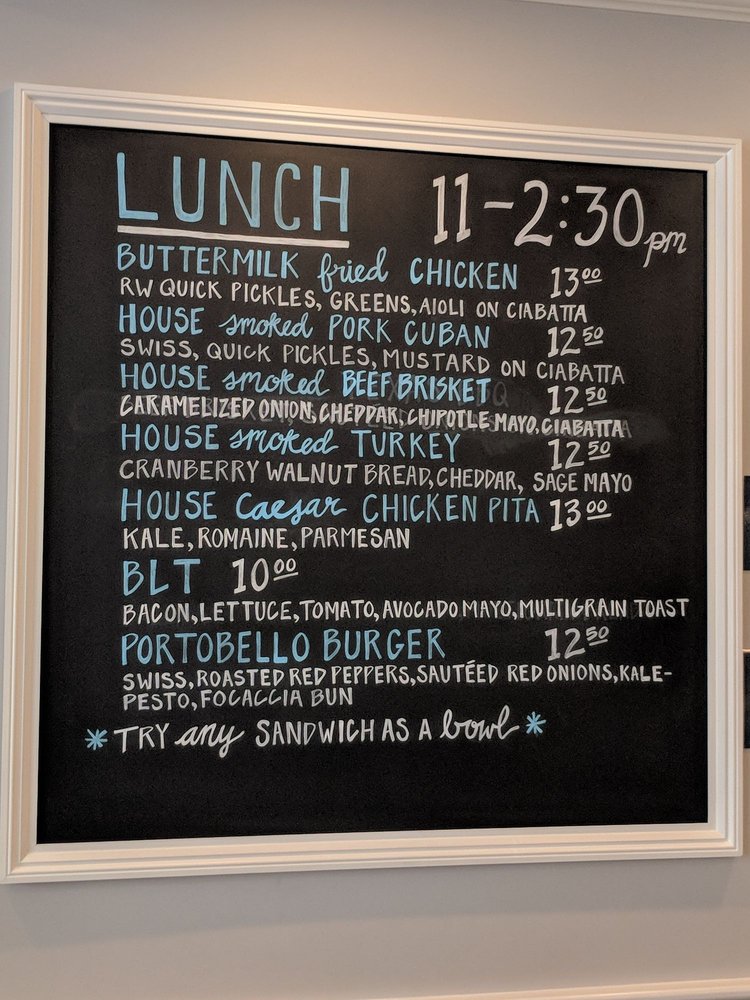 LUNCH 11-2:30 pm
BUTTERMILK fried CHICKEN 13 00
RW QUICK PICKLES, GREENS, AIOLI ON CIABATTA
HOUSE smoked PORK CUBAN 12 50
SWISS, QUICK PICKLES, MUSTARD ON CIABATTA
HOUSE smoked BEEF BRISKET 12 50
CARAMELIZED ONION, CHEDDAR, CHIPOTLE MAYO, CIABATTA
HOUSE smoked TURKEY 12 50
CRANBERRY WALNUT BREAD, CHEDDAR, SAGE MAYO
HOUSE Caesar CHICKEN PITA 13 00
KALE, ROMAINE, PARMESAN
BLT 10 00
BACON, LETTUCE, TOMATO, AVOCADO MAYO, MULTIGRAIN TOAST
PORTOBELLO BURGER 12 50
SWISS, ROASTED RED PEPPERS, SAUTÉED RED ONIONS, KALE-
PESTO, FOCACCIA BUN
*TRY any SANDWICH AS A bowl*